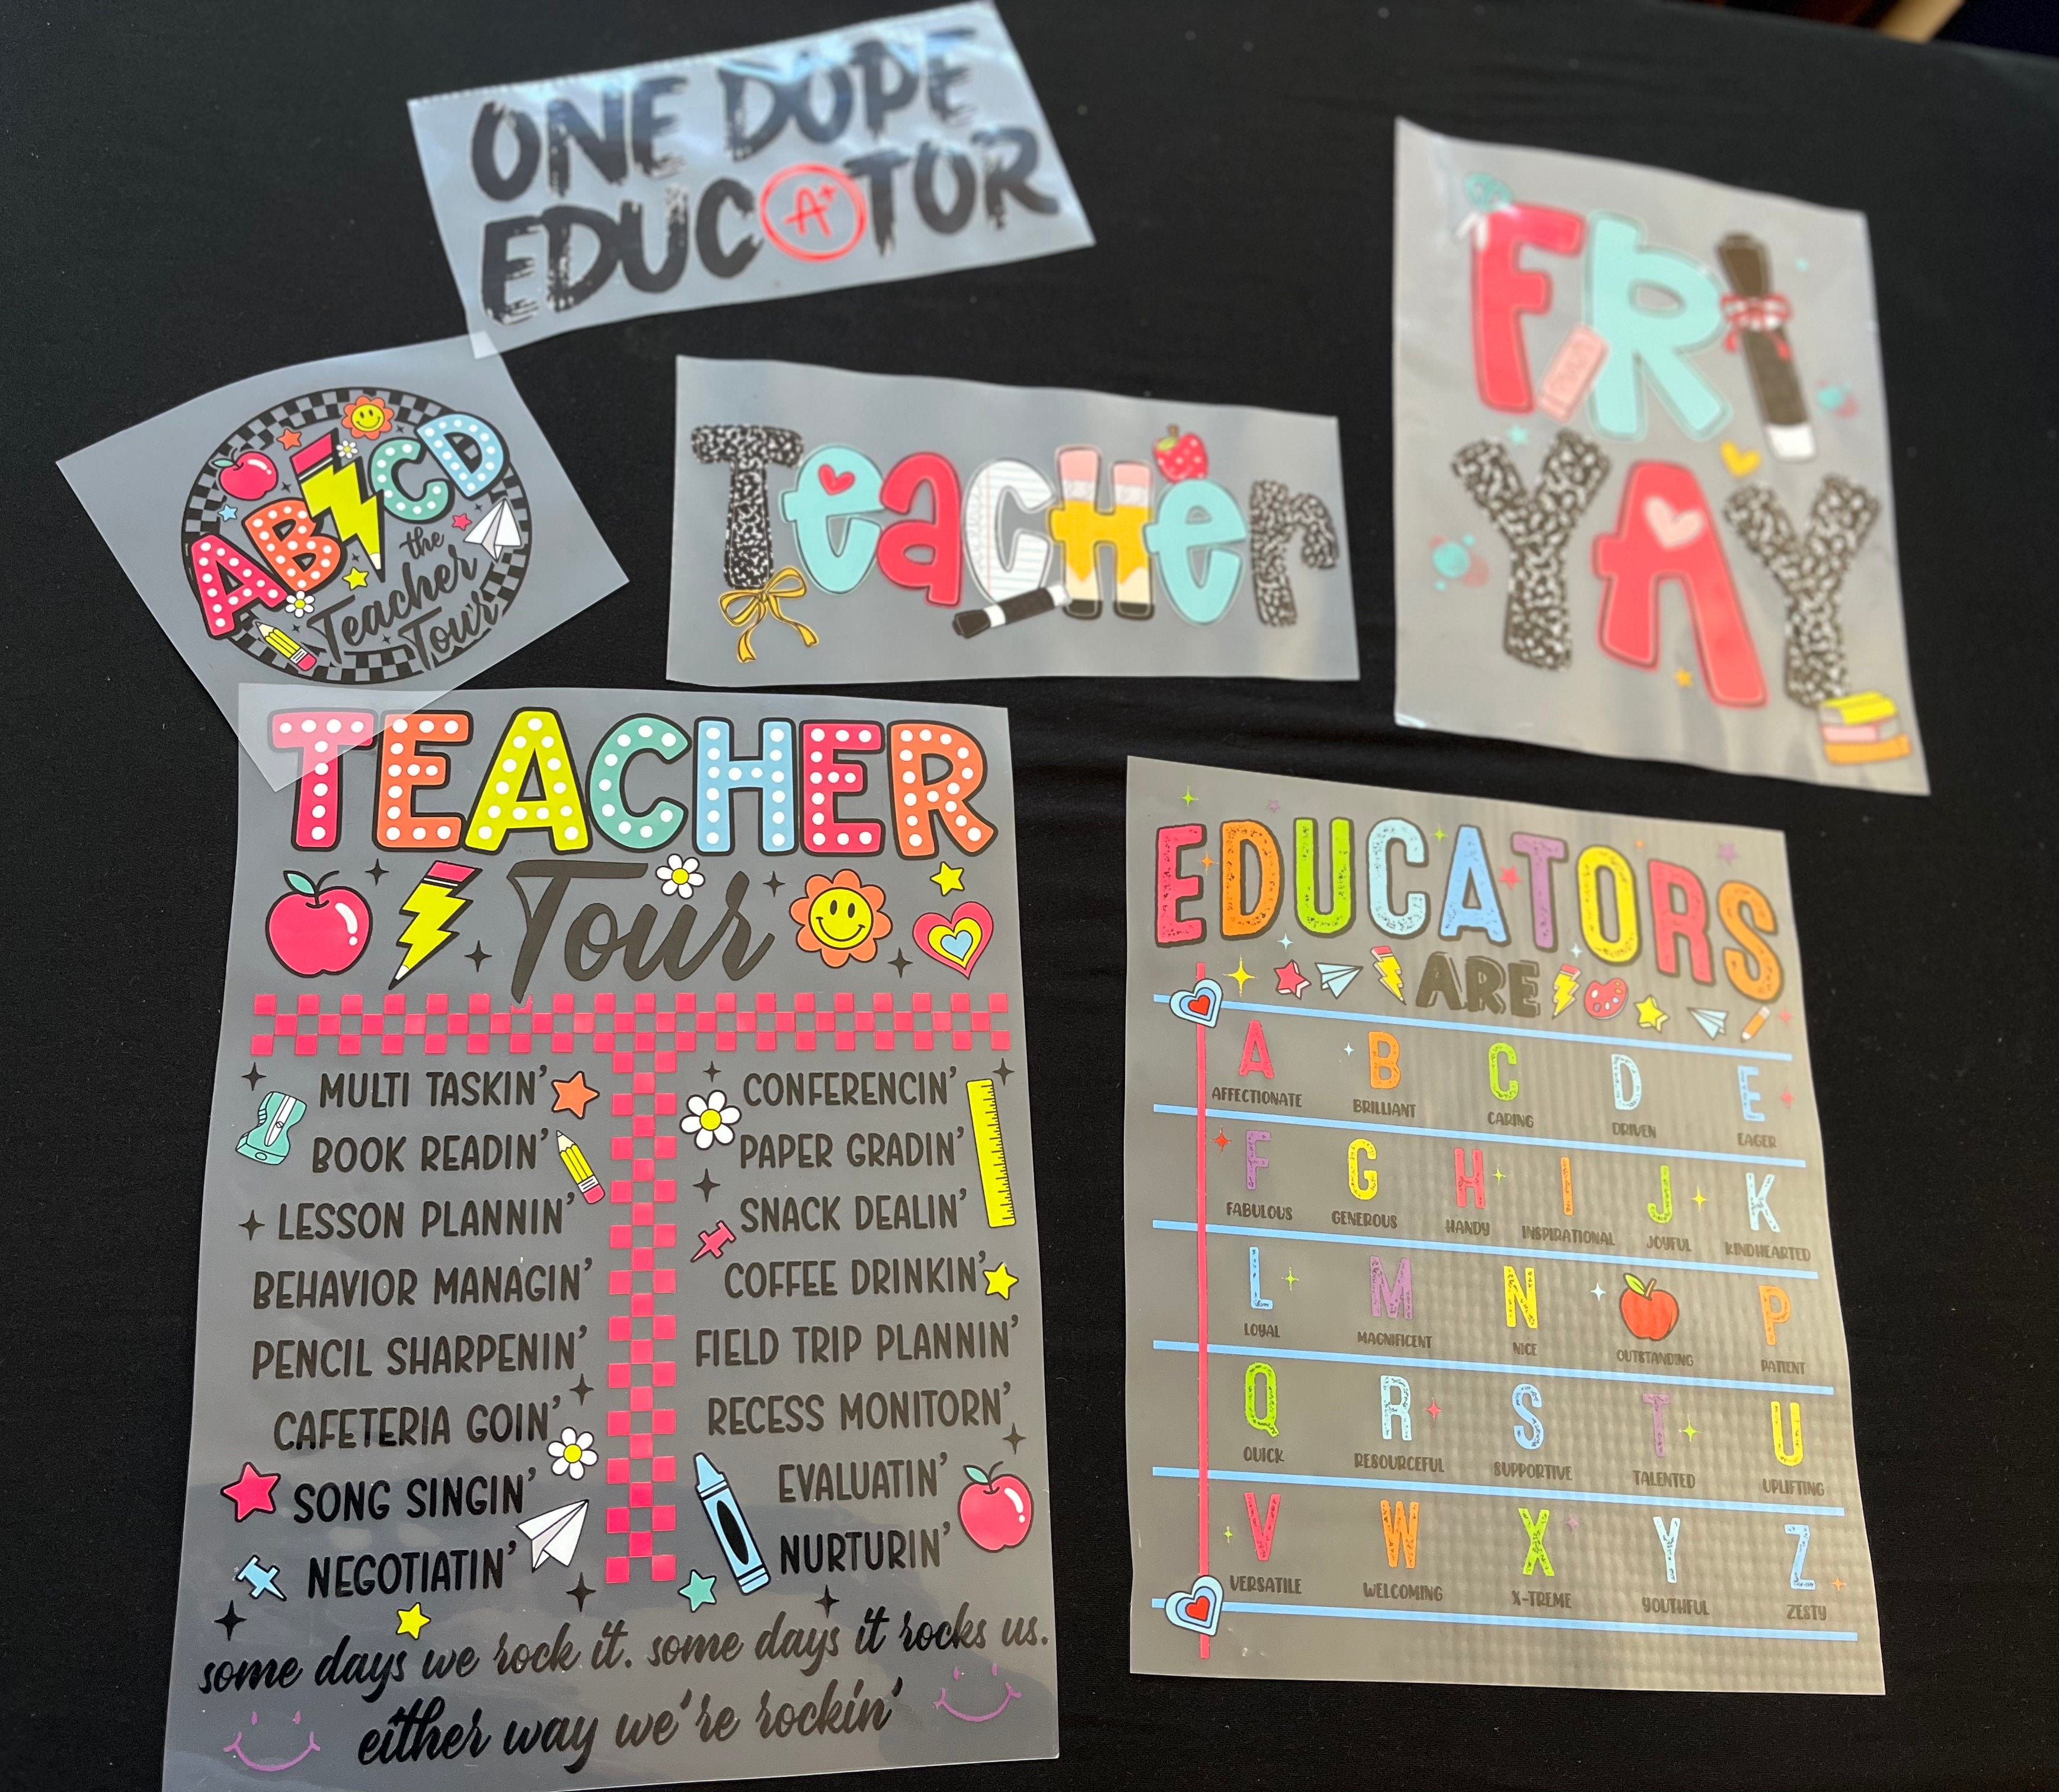 ONE DOPE
EDUCA+TOR
ABCD
the
Teacher
Tour
Teacher
FRI
YAY
TEACHER
Tour
MULTI TASKIN'
BOOK READIN'
LESSON PLANNIN'
BEHAVIOR MANAGIN'
PENCIL SHARPENIN'
CAFETERIA GOIN'
SONG SINGIN'
NEGOTIATIN'
CONFERENCIN'
PAPER GRADIN'
SNACK DEALIN'
COFFEE DRINKIN'
FIELD TRIP PLANNIN'
RECESS MONITORN'
EVALUATIN'
NURTURIN'
some days we rock it. some days it rocks us.
either way we're rockin'
EDUCATORS
ARE
A B C D E
AFFECTIONATE BRILLIANT CARING DRIVEN EAGER
F G H I J K
FABULOUS GENEROUS HANDY INSPIRATIONAL JOYFUL KINDHEARTED
L M N P
LOYAL MAGNIFICENT NICE OUTSTANDING PATIENT
Q R S T U
QUICK RESOURCEFUL SUPPORTIVE TALENTED UPLIFTING
V W X Y Z
VERSATILE WELCOMING X-TREME YOUTHFUL ZESTY